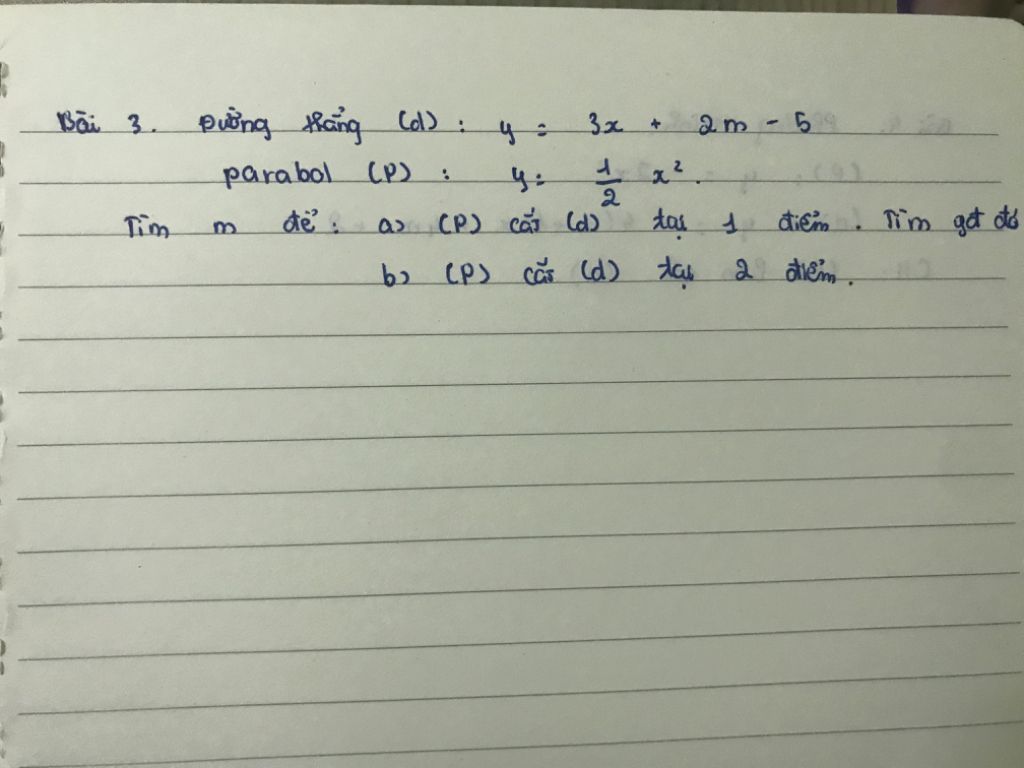 Bài 3. Đường thẳng (d) : y = 3x + 2m - 5
parabol (P) : y = 1/2 x².
Tìm m để : a) (P) cắt (d) tại 1 điểm. Tìm gđ đó
b) (P) cắt (d) tại 2 điểm.